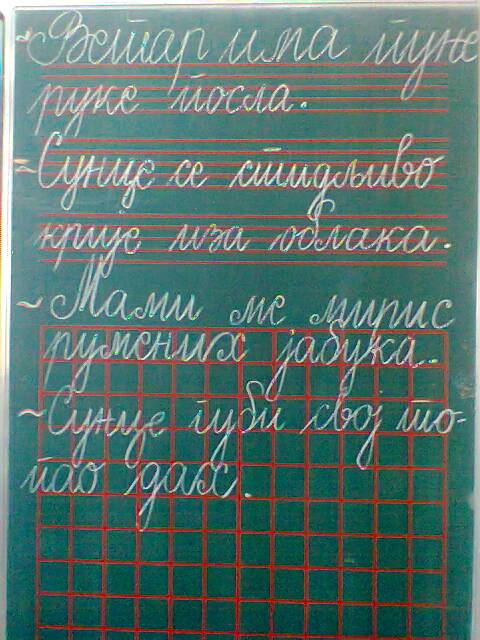 ~Ветар има пуне
руке посла.
~Сунце се стидљиво
крије иза облака.
~Мами ме мирис
румених јабука.
~Сунце губи свој то-
пао дах.